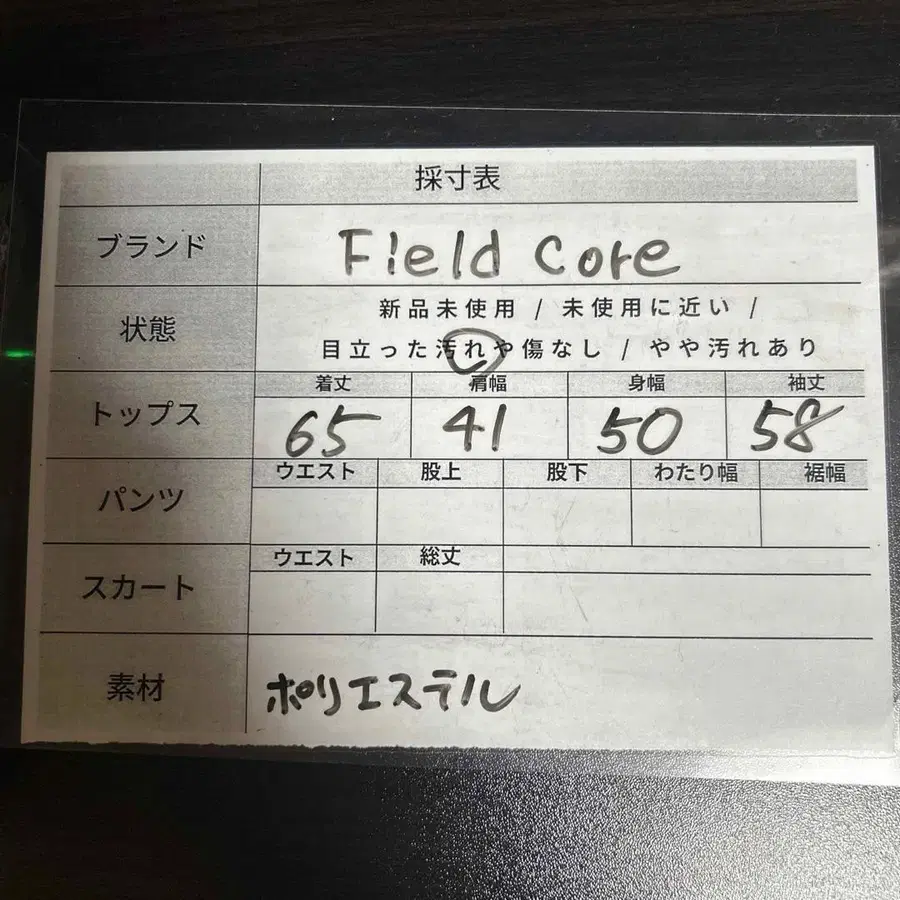 採寸表
ブランド Field Core
状態 新品未使用 / 未使用に近い /
目立った汚れや傷なし / やや汚れあり
着丈 肩幅 身幅 袖丈
トップス 65 41 50 58
ウエスト 股上 股下 わたり幅 裾幅
パンツ
ウエスト 総丈
スカート
素材 ポリエステル